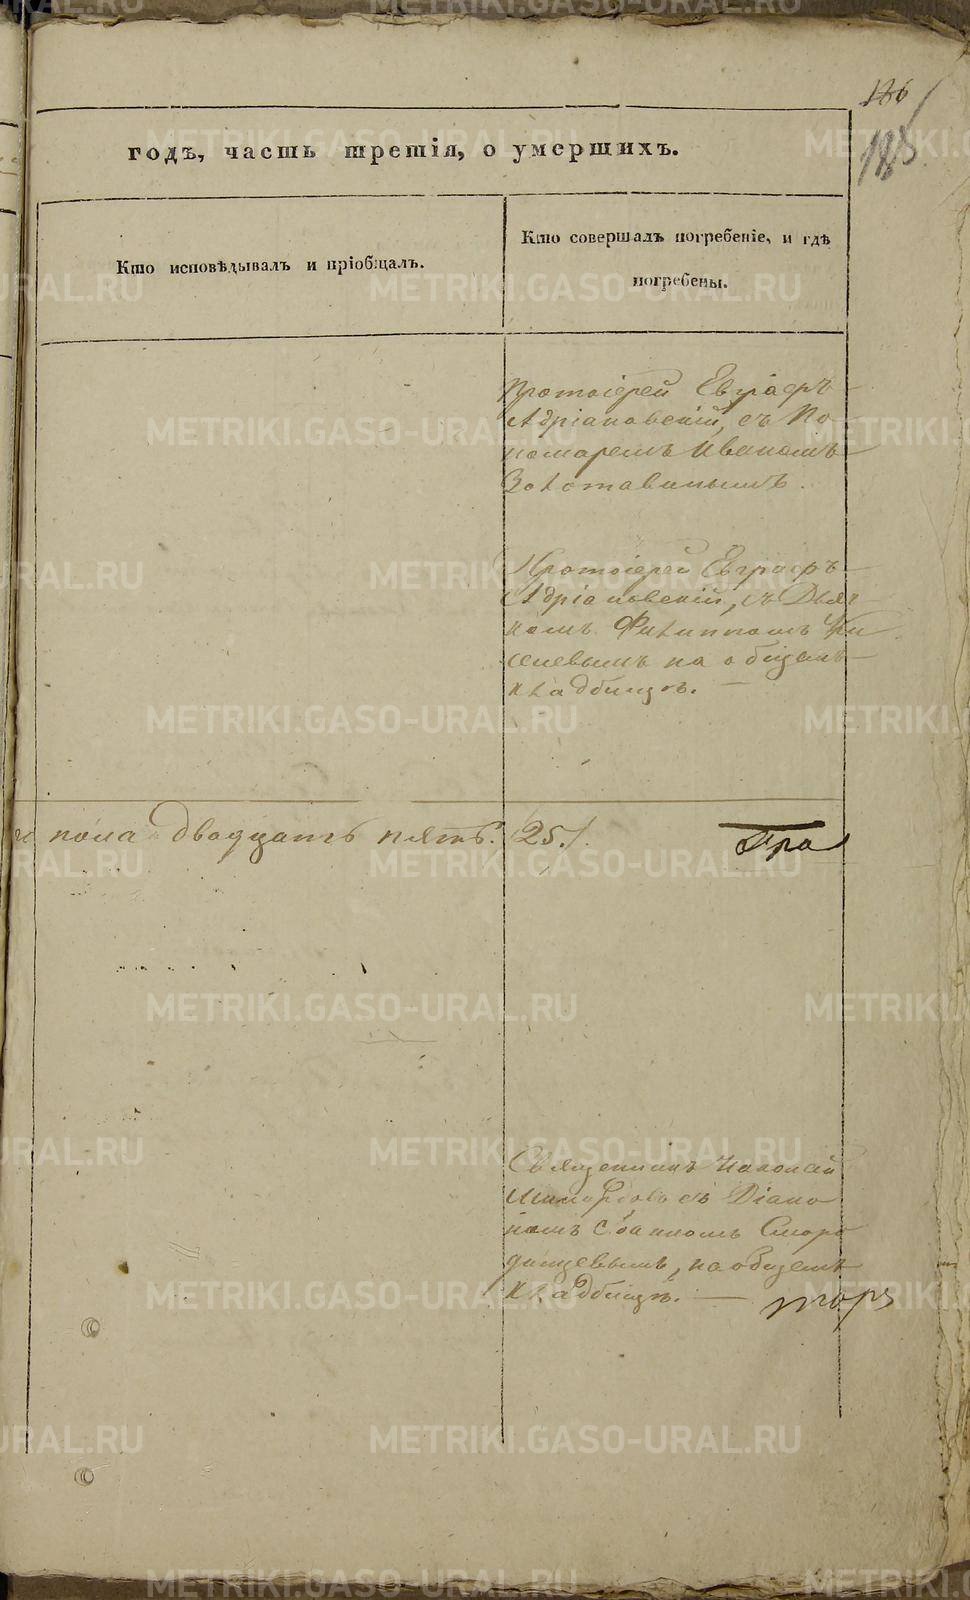 126
185
годъ, часть третія, о умершихъ.
Кто исповѣдывалъ и пріобщалъ.
Кто совершалъ погребеніе, и гдѣ
погребены.
Протоіерей Евграфъ
Адріановскій, съ По-
номаремъ Иваномъ
Золотавинымъ.
Протоіерей Евграфъ
Адріановскій, съ Дьяч-
комъ Филиппомъ Ки
селевымъ на общемъ
кладбищѣ.
го пола двадцать пять. 25.
Гра
Священникъ Николай
съ Діако
номъ Іоанномъ Сморо
динцевымъ, на общемъ
кладбищѣ.
METRIKI.GASO-URAL.RU